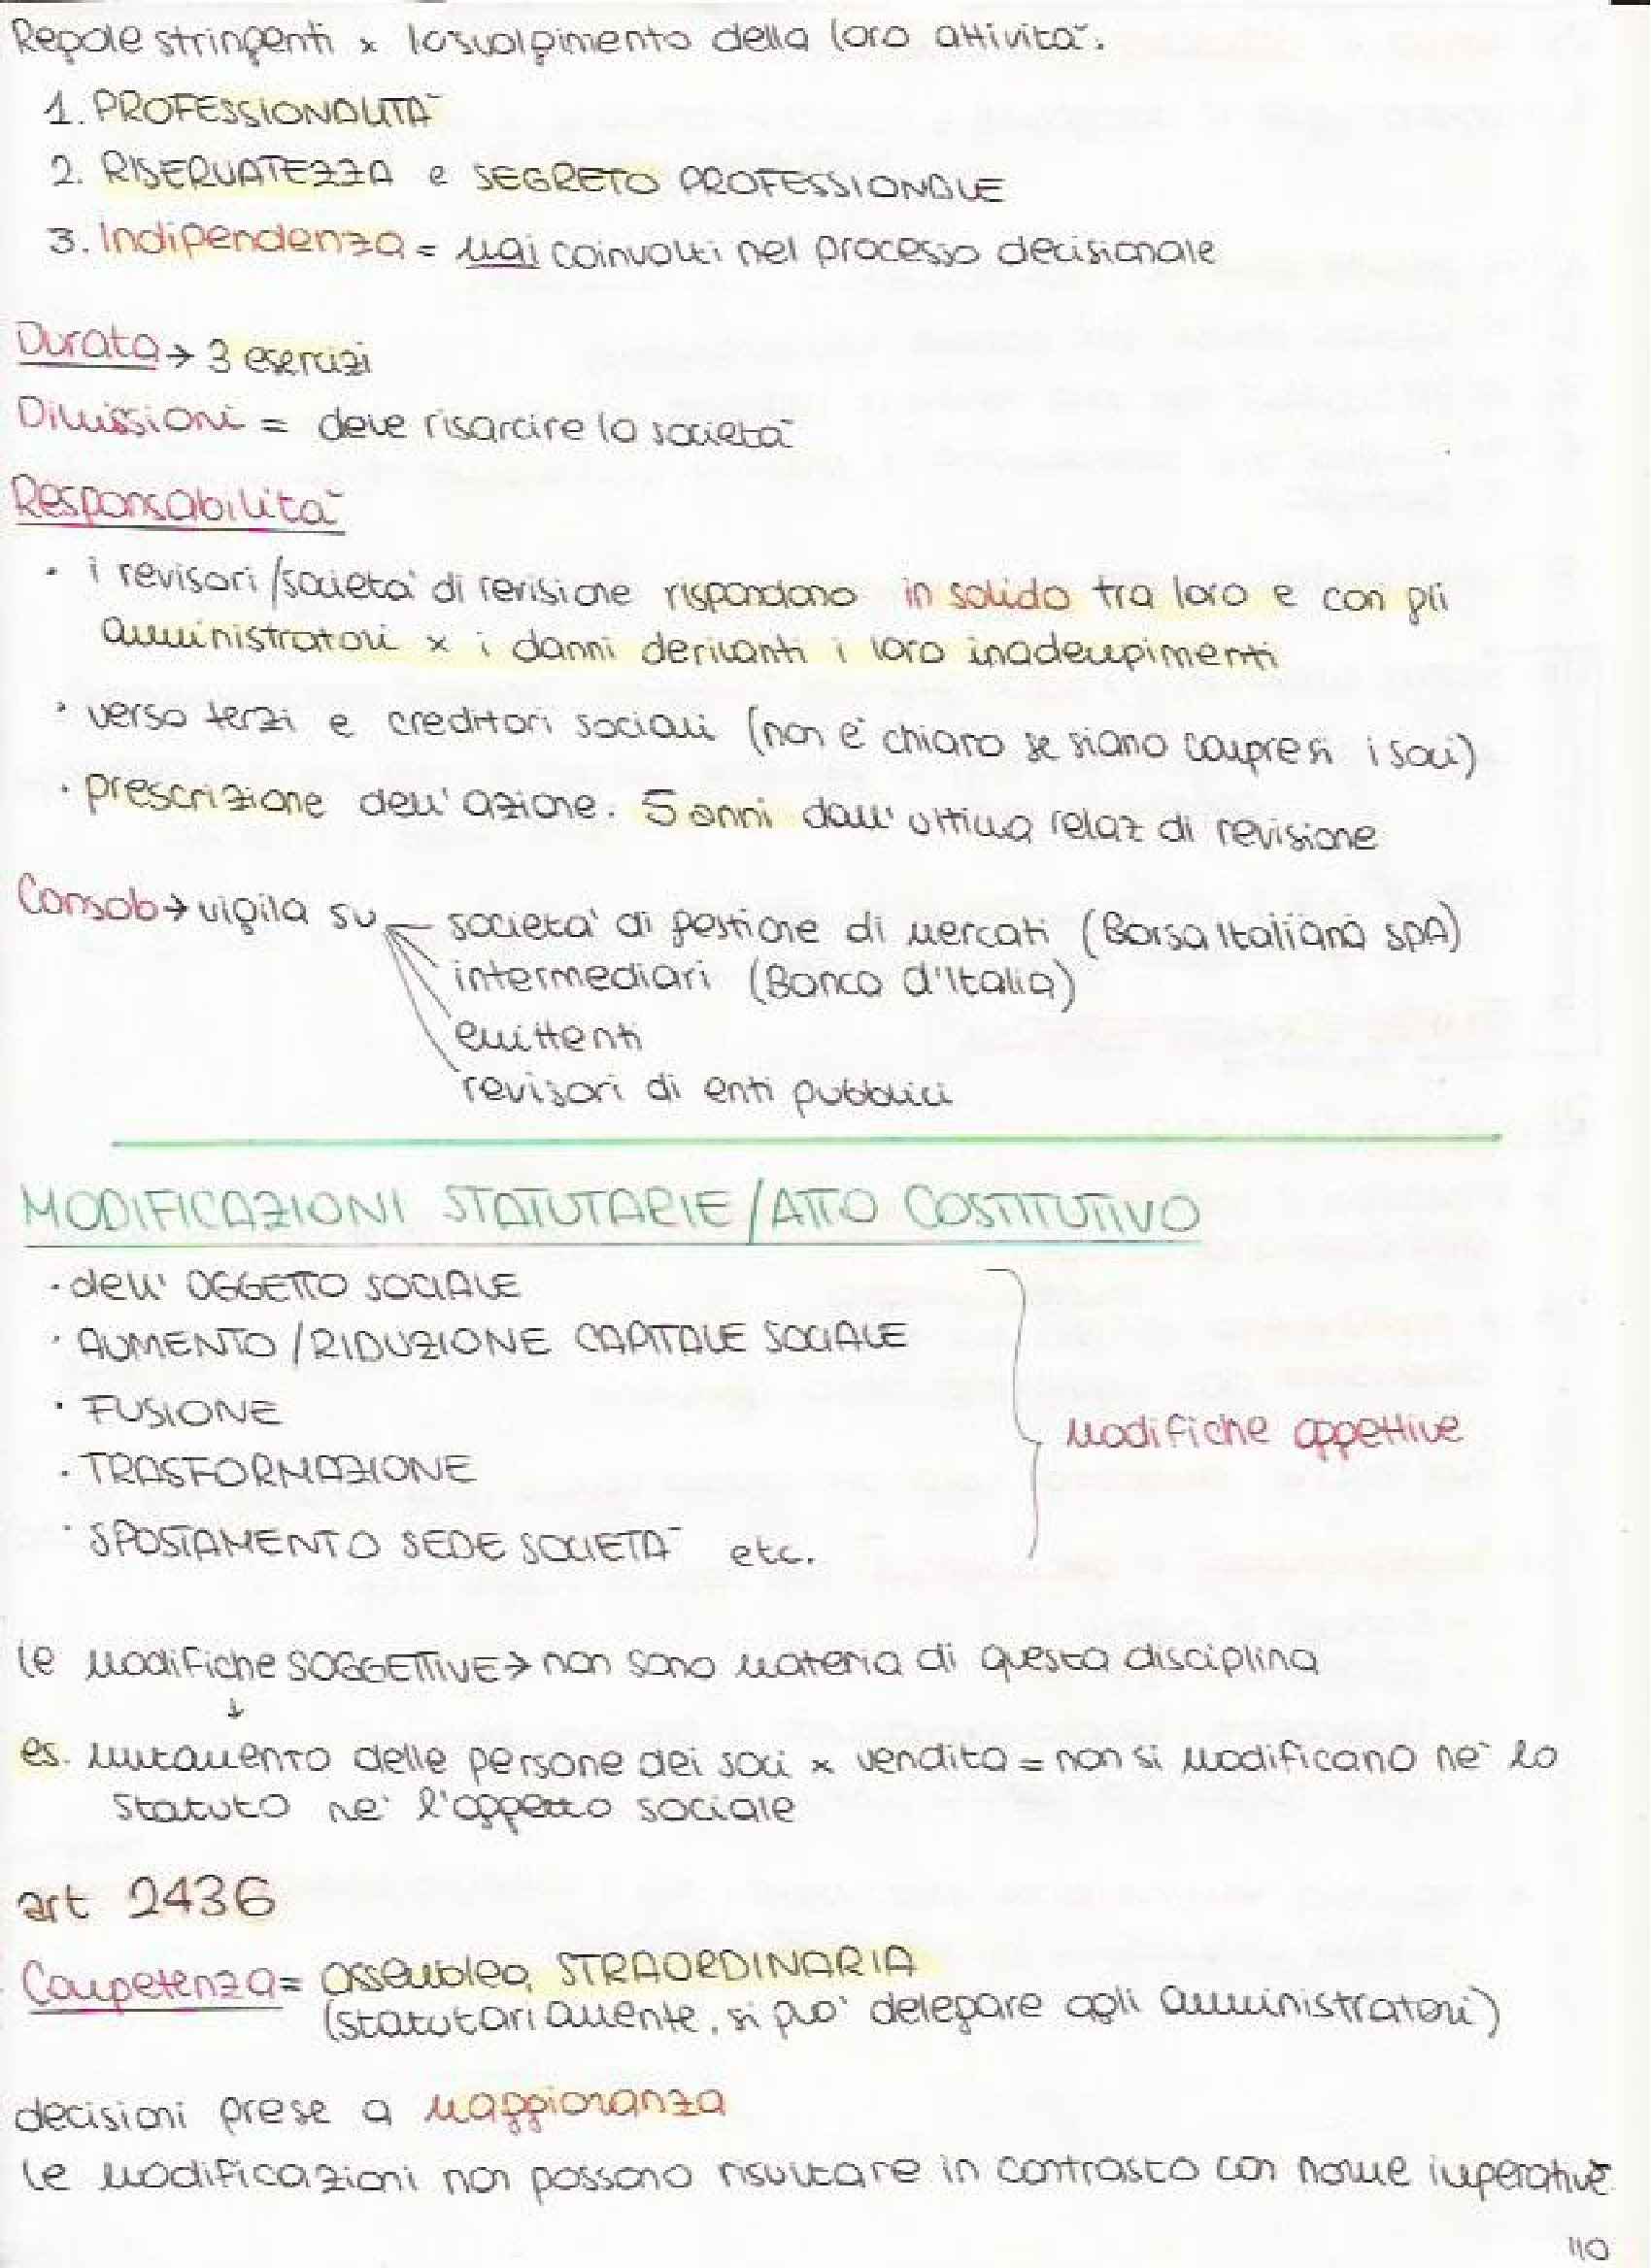 Regole stringenti x lo svolgimento della loro attività:
1. PROFESSIONALITÀ
2. RISERVATEZZA e SEGRETO PROFESSIONALE
3. Indipendenza = mai coinvolti nel processo decisionale
Durata → 3 esercizi
Dimissioni = deve risarcire la società
Responsabilità
· i revisori/società di revisione rispondono in solido tra loro e con gli
amministratori x i danni derivanti i loro inadempimenti
· verso terzi e creditori sociali (non è chiaro se siano compresi i soci)
· prescrizione dell'azione: 5 anni dall'ultima relaz di revisione
Consob → vigila su società di gestione di mercati (Borsa Italiana SPA)
intermediari (Banca d'Italia)
emittenti
revisori di enti pubblici
MODIFICAZIONI STATUTARIE/ATTO COSTITUTIVO
· dell' OGGETTO SOCIALE
· AUMENTO/RIDUZIONE CAPITALE SOCIALE
· FUSIONE
· TRASFORMAZIONE
· SPOSTAMENTO SEDE SOCIETÀ etc.
Modifiche oggettive
le modifiche SOGGETTIVE → non sono materia di questa disciplina
↓
es. mutamento delle persone dei soci x vendita = non si modificano nè lo
statuto nè l'oggetto sociale
art 2436
Competenza = assemblea STRAORDINARIA
(statutariamente, si può delegare agli amministratori)
decisioni prese a maggioranza
le modificazioni non possono risultare in contrasto con norme imperative
110